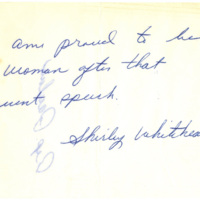 am proud to be
woman after that
spuch.
Shirley Whitehea